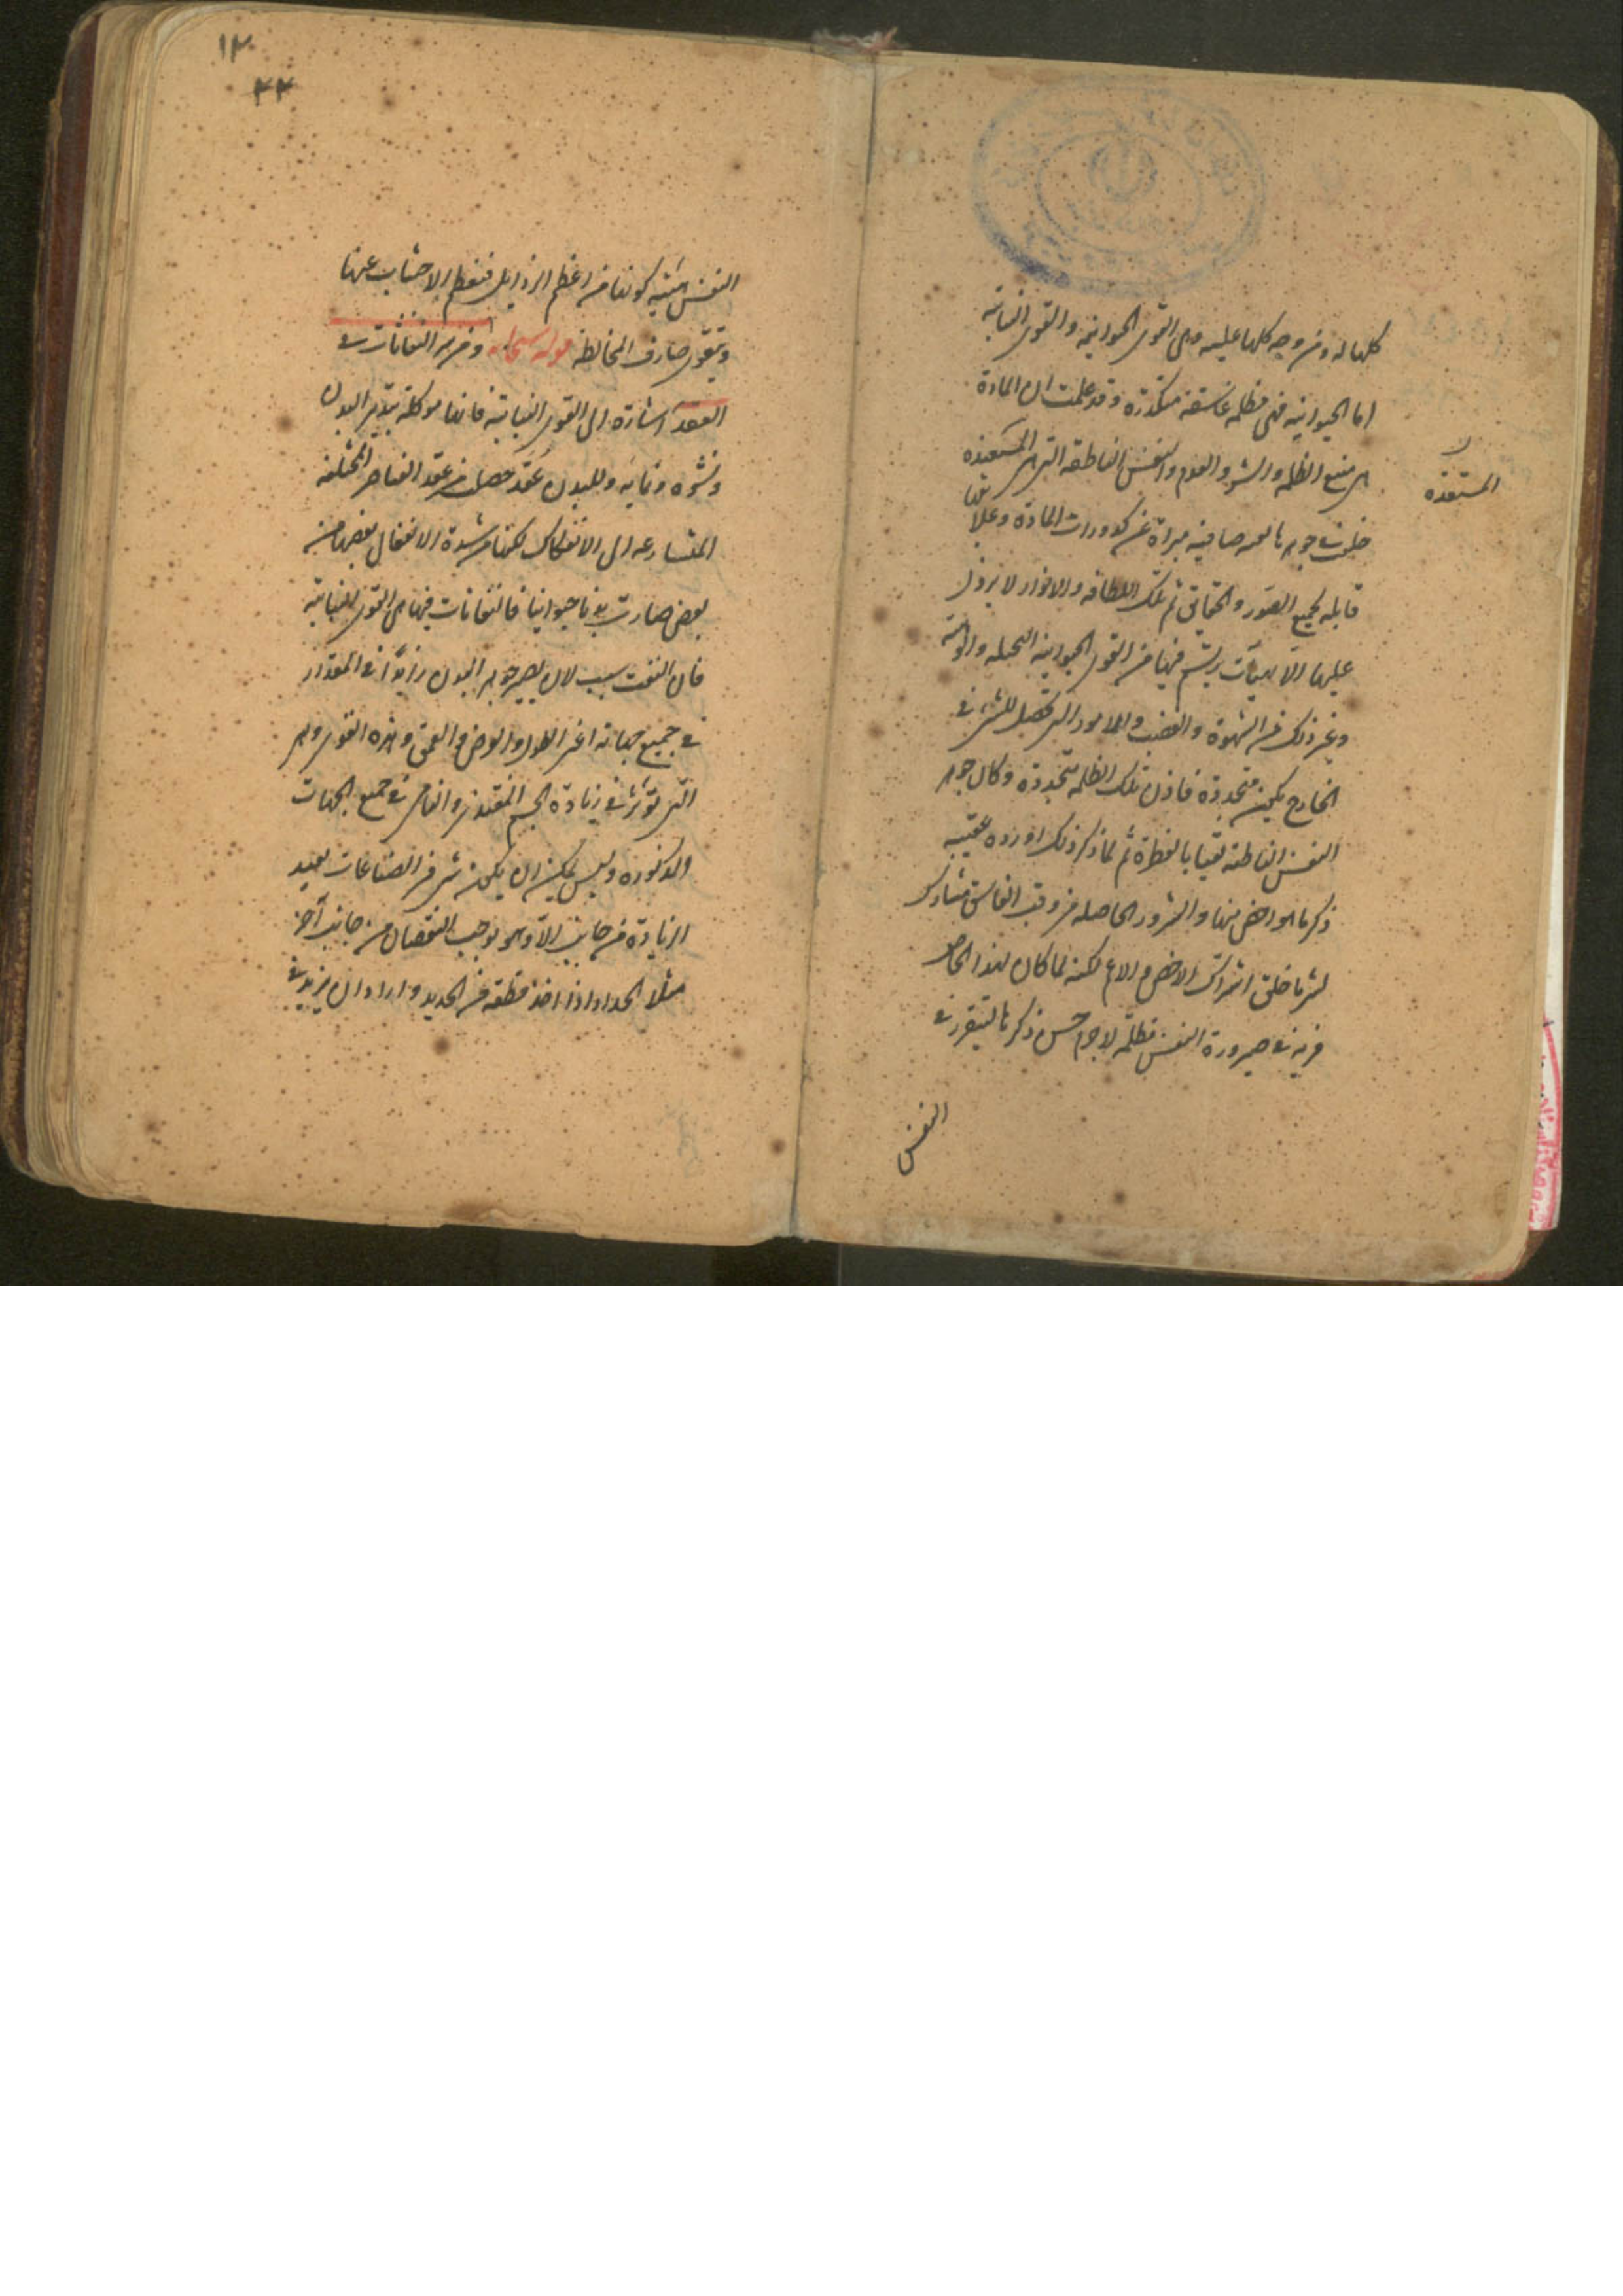 كلها له ومن وجه كلها عليه وهى القوى الحيوانيه والقوى النباتية
اما الحيوانيه فهى مظلمه غاسقة متكدرة وقد علمت ان المادة
هى منبع الظلمه والشر والعدم والنفس الناطقه التى هى المستعيذه
المستعيذه
خلقت فى جوهرها نقيه صافيه مبراة عن كدورات المادة وعلايقها
قابله لجميع الصور والحقايق ثم تلك اللطافه والانوار لا يزول
عليها الا بهيئات يرتسم فيها من القوى الحيوانيه التخيليه والوهمية
وغير ذلك من الشهوة والغضب والامور التى تحصل للشر فى
الخارج يكون متجددة فاذن تلك الظلمه متجددة وكان جوهر
النفس الناطقه نقيا بالفطرة ثم لما ذكر ذلك اورده عقيبه
ذكر ما هو اخص منها والشرور الحاصله من وقب الغاسق مشارك
لشر ما خلق اشتراك الاخص والاعم لكنه لما كان لهذا الخاص
مزية فى صيرورة النفس مظلمة لا جرم حسن ذكرها ليتقرر فى
النفس
١٣
٣٣
النفس هيئة كونها من اعظم الرذايل فيعظم الاجتناب عنها
ويقوى صارف المخالطه قوله سبحانه ومن شر النفاثات فى
العقد اشارة الى القوى النباتيه فانها موكلة بتدبير البدن
ونشوه ونمايه وللبدن عقد حصلت من عقد العناصر المختلفه
المتسارعه الى الانفكاك لكنها من شدة الانفعال بعضها من
بعض صارت بدنا حيوانيا فالنفاثات فيها هى القوى النباتية
فان النفث سبب لان يصير جوهر البدن زايدا فى المقدار
فى جميع جهاته اعنى الطول والعرض والعمق وهذه القوى هى
التى تؤثر فى زيادة الجسم المغتذى والنامى فى جميع الجهات
المذكوره وليس يمكن ان يكون شى من الصناعات يفيد
الزيادة من جانب الا وهو يوجب النقصان من جانب آخر
مثلا الحداد اذا اخذ قطعه من الحديد واراد ان يزيد فى